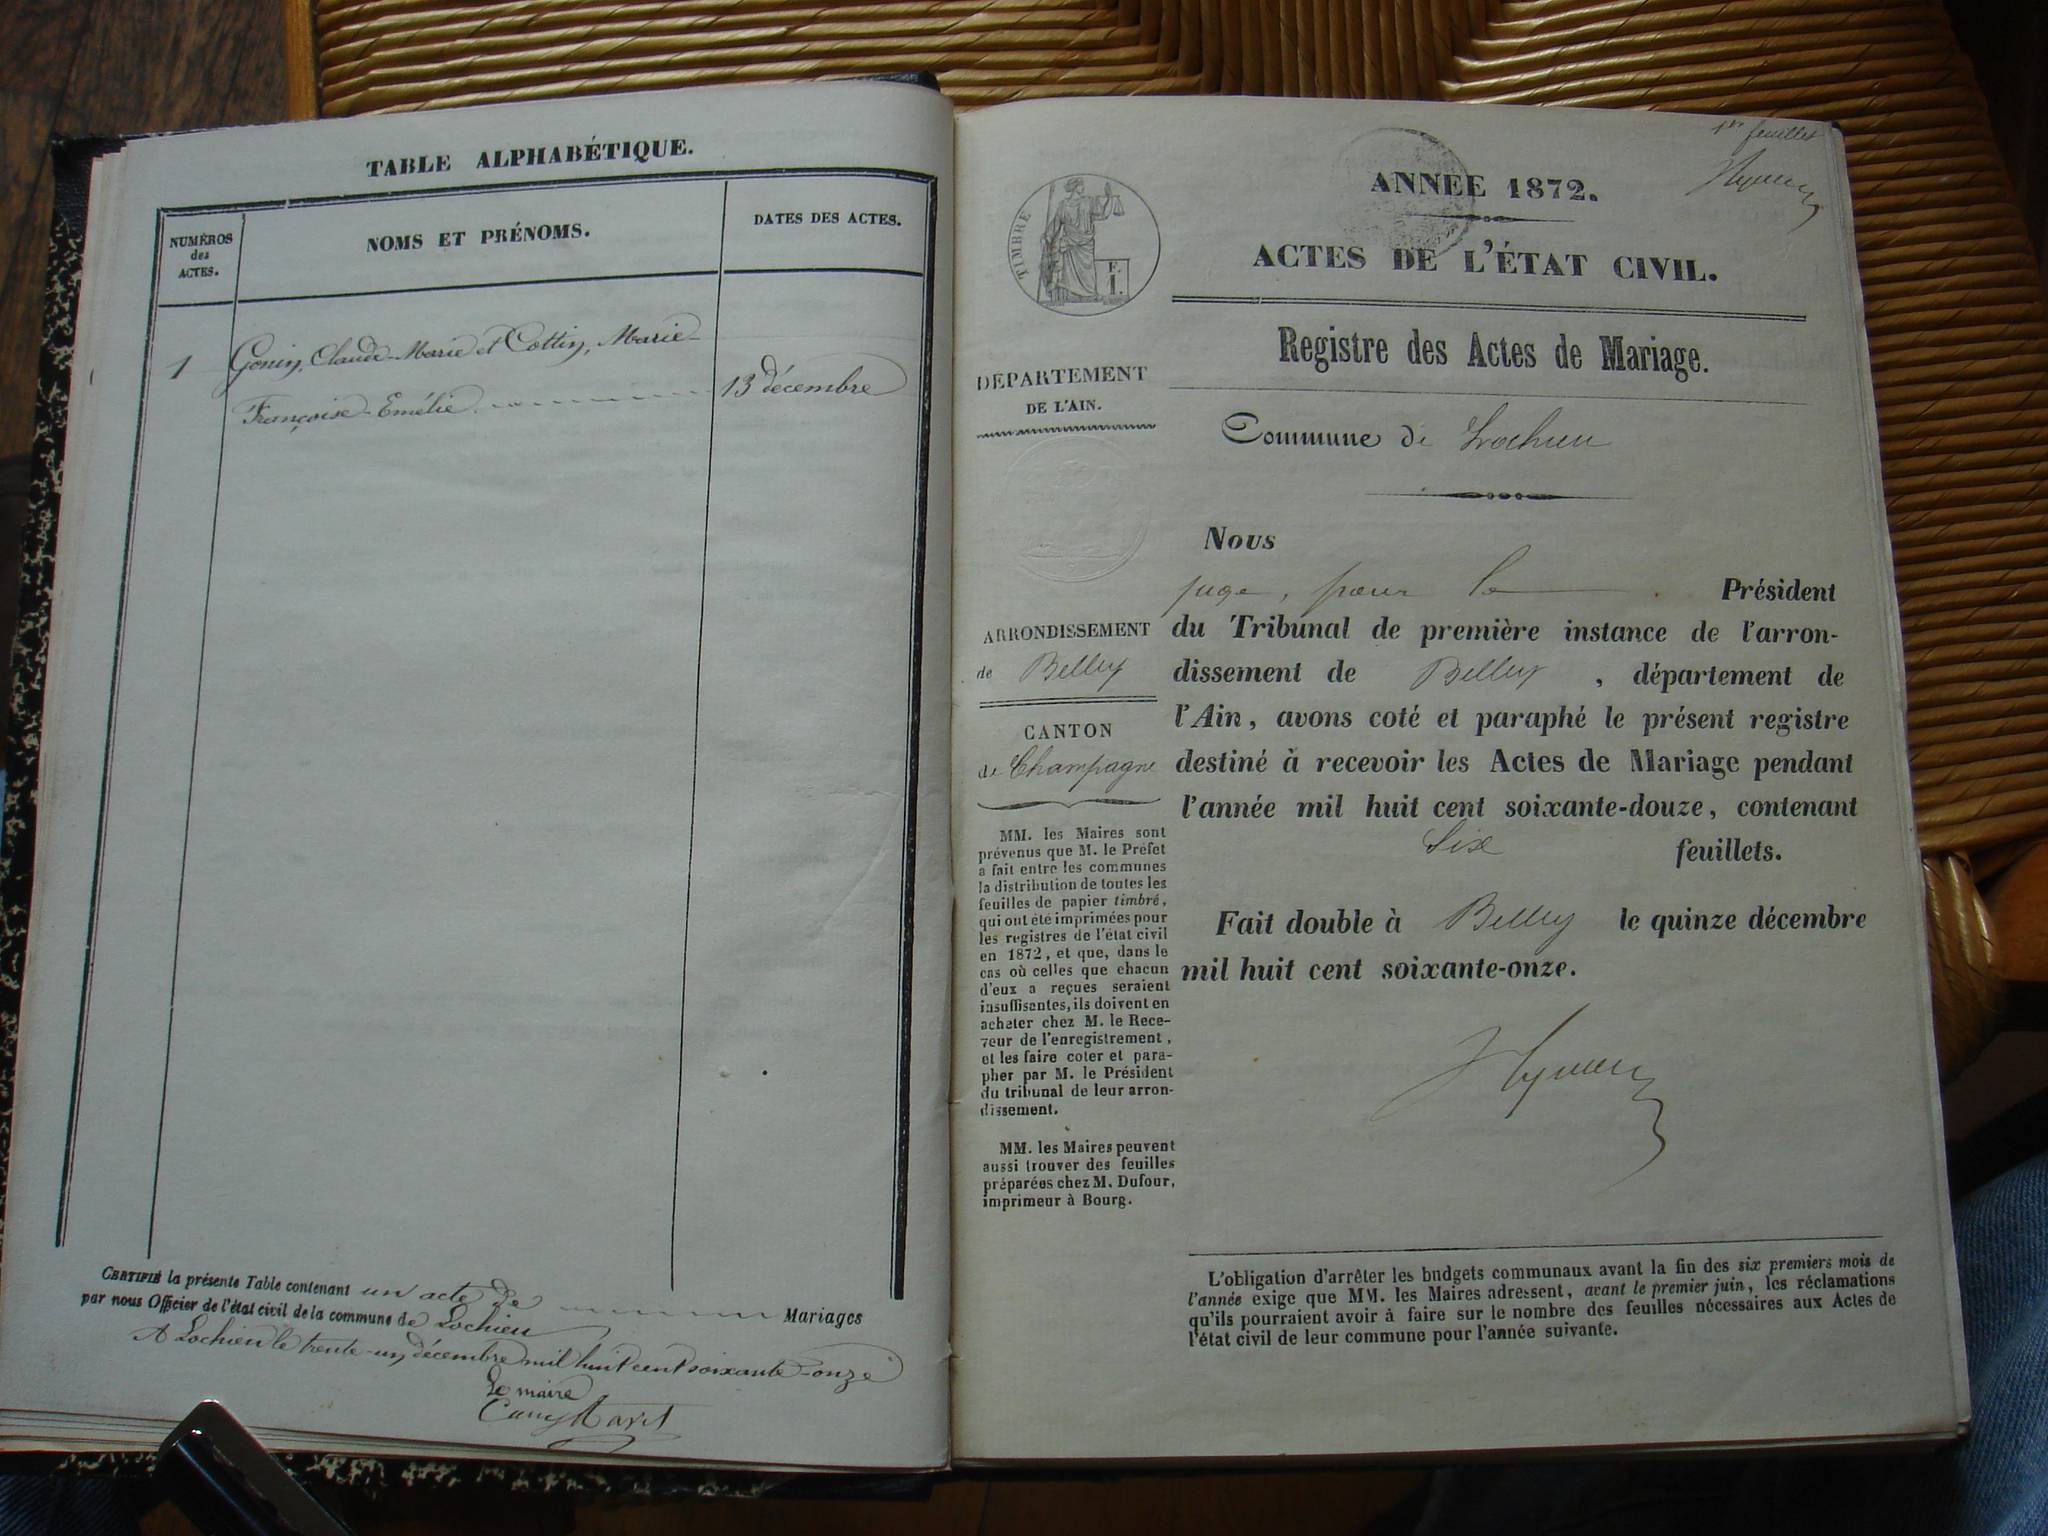 TABLE ALPHABÉTIQUE.
NUMÉROS
des
ACTES.
NOMS ET PRÉNOMS.
DATES DES ACTES.
1
Gonin, Claude-Marie et Cottin, Marie-
Françoise-Emélie
13 décembre
CERTIFIÉ la présente Table contenant un acte de Mariages
par nous Officier de l'état civil de la commune de Lochieu
A Lochieu le trente-un décembre mil huit cent soixante-onze
Le maire
1er feuillet
TIMBRE
F.
1.
ANNÉE 1872.
ACTES DE L'ÉTAT CIVIL.
Registre des Actes de Mariage.
DÉPARTEMENT
DE L'AIN.
Commune de Lochieu
Nous
juge, pour le Président
du Tribunal de première instance de l'arron-
dissement de Belley, département de
l'Ain, avons coté et paraphé le présent registre
destiné à recevoir les Actes de Mariage pendant
l'année mil huit cent soixante-douze, contenant
Six feuillets.
Fait double à Belley le quinze décembre
mil huit cent soixante-onze.
ARRONDISSEMENT
de Belley
CANTON
de Champagne
MM. les Maires sont
prévenus que M. le Préfet
a fait entre les communes
la distribution de toutes les
feuilles de papier timbré,
qui ont été imprimées pour
les registres de l'état civil
en 1872, et que, dans le
cas où celles que chacun
d'eux a reçues seraient
insuffisantes, ils doivent en
acheter chez M. le Rece-
veur de l'enregistrement,
et les faire coter et para-
pher par M. le Président
du tribunal de leur arron-
dissement.
MM. les Maires peuvent
aussi trouver des feuilles
préparées chez M. Dufour,
imprimeur à Bourg.
L'obligation d'arrêter les budgets communaux avant la fin des six premiers mois de
l'année exige que MM. les Maires adressent, avant le premier juin, les réclamations
qu'ils pourraient avoir à faire sur le nombre des feuilles nécessaires aux Actes de
l'état civil de leur commune pour l'année suivante.